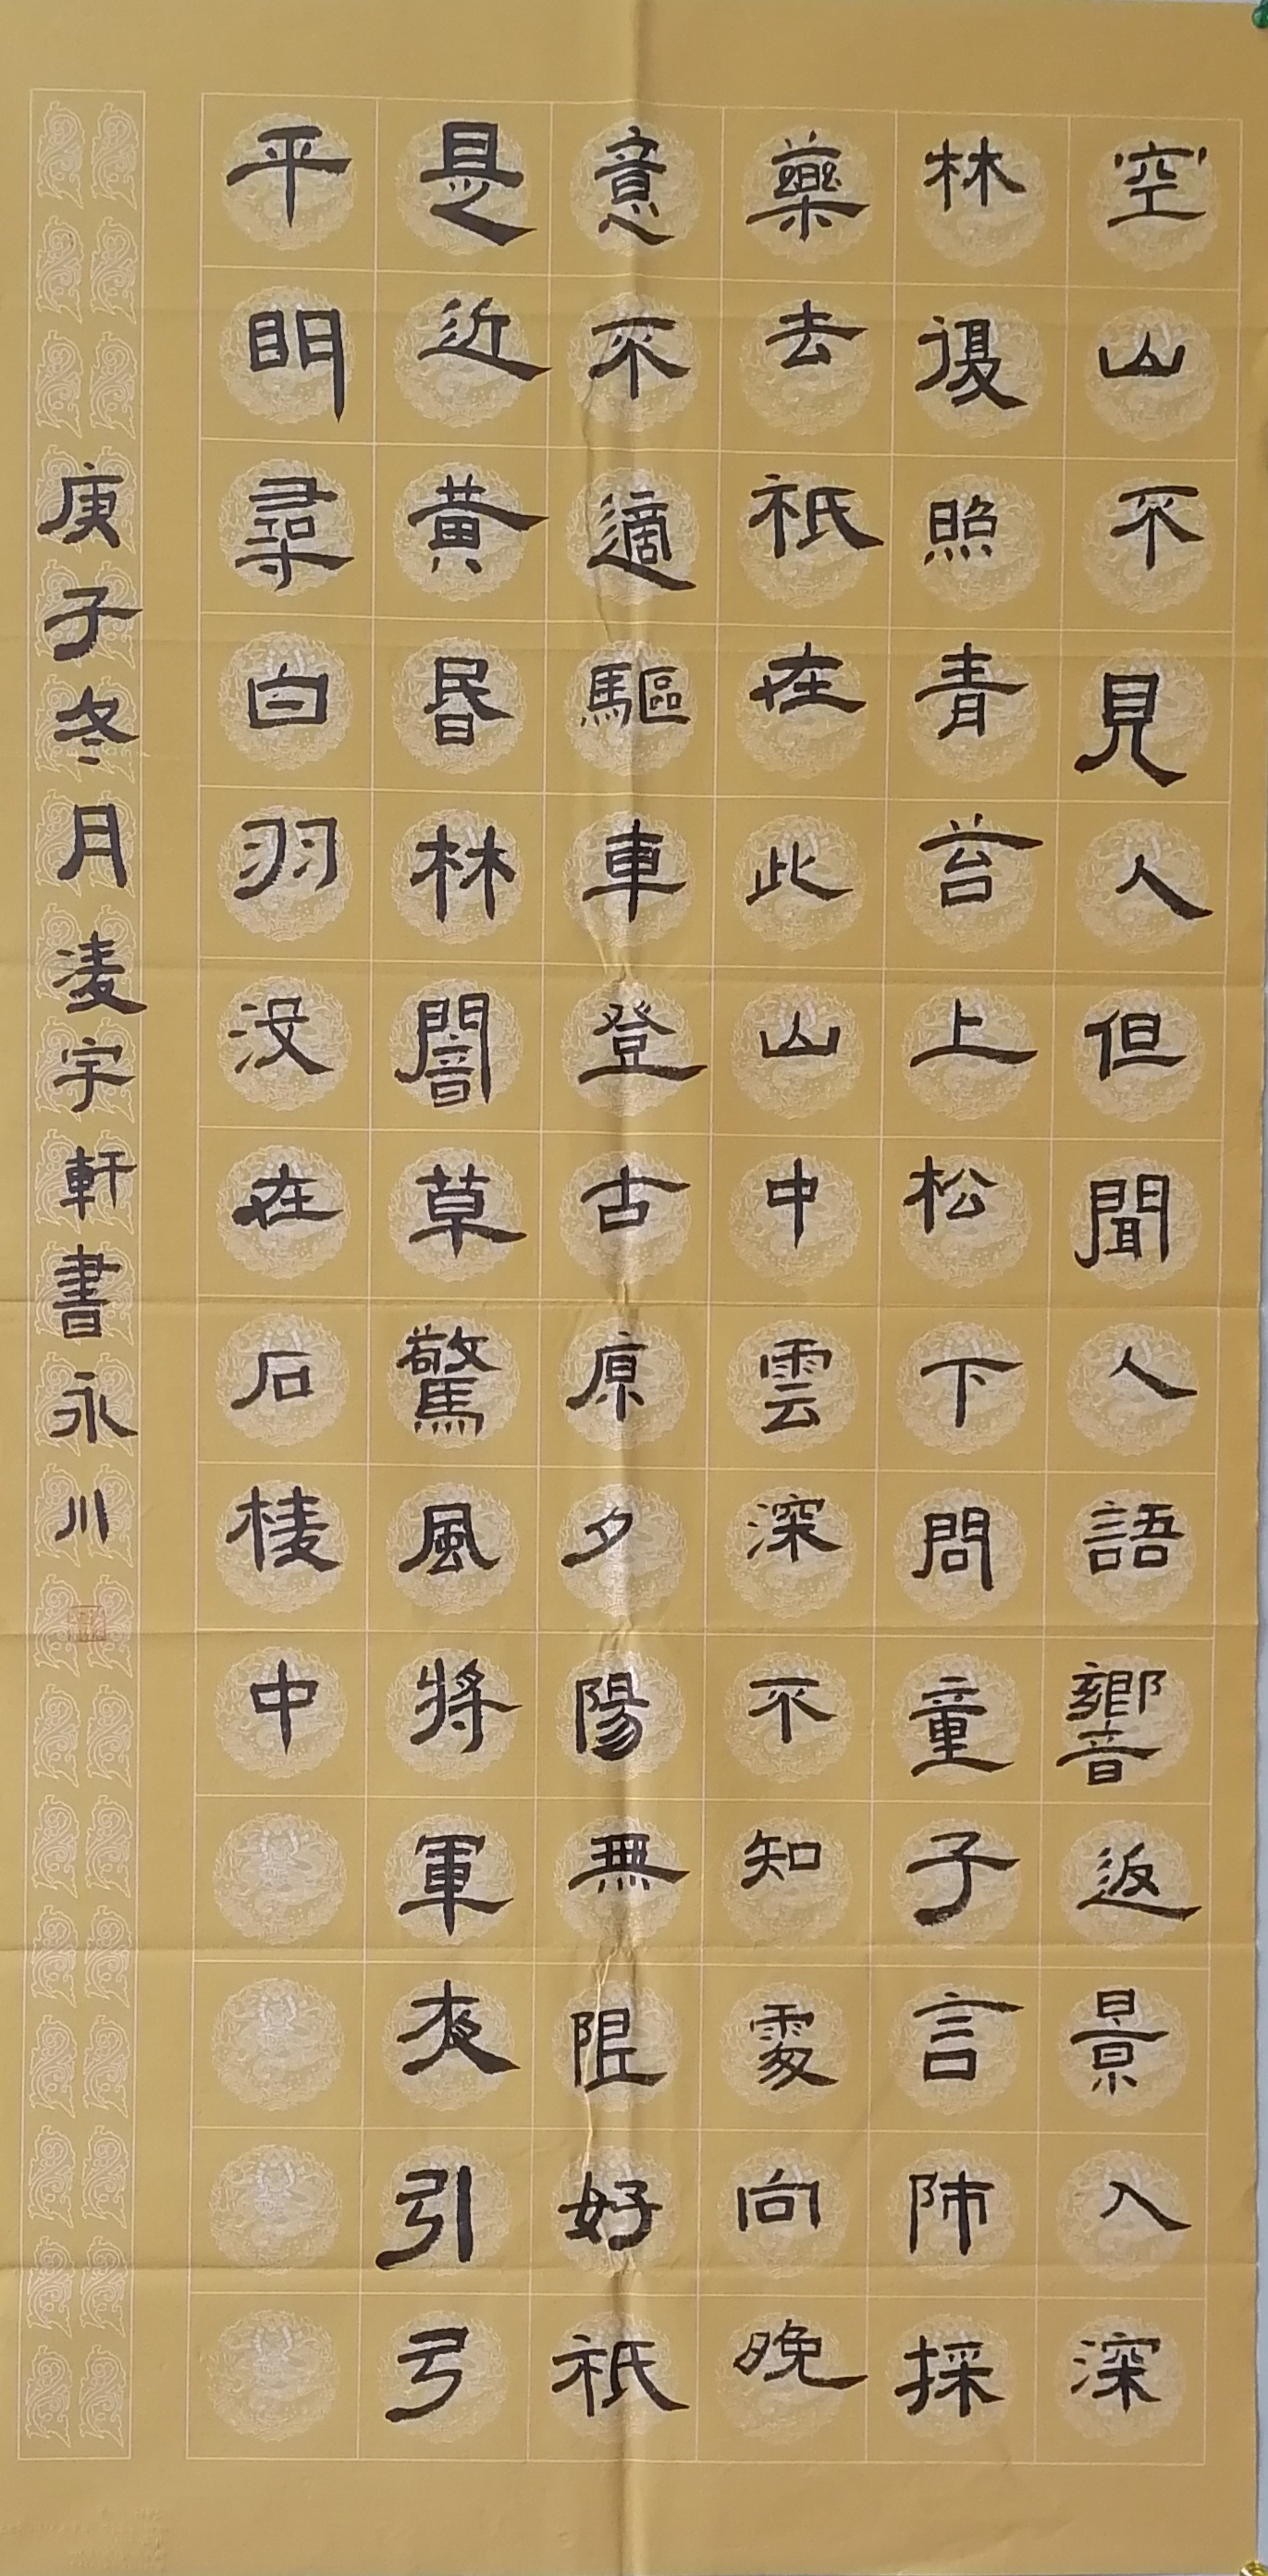 空山不見人但聞人語響返景入深
林復照青苔上松下問童子言師採
藥去祇在此山中雲深不知處向晚
意不適驅車登古原夕陽無限好祇
是近黃昏林闇草驚風將軍夜引弓
平明尋白羽沒在石棱中
庚子冬月凌宇軒書永川